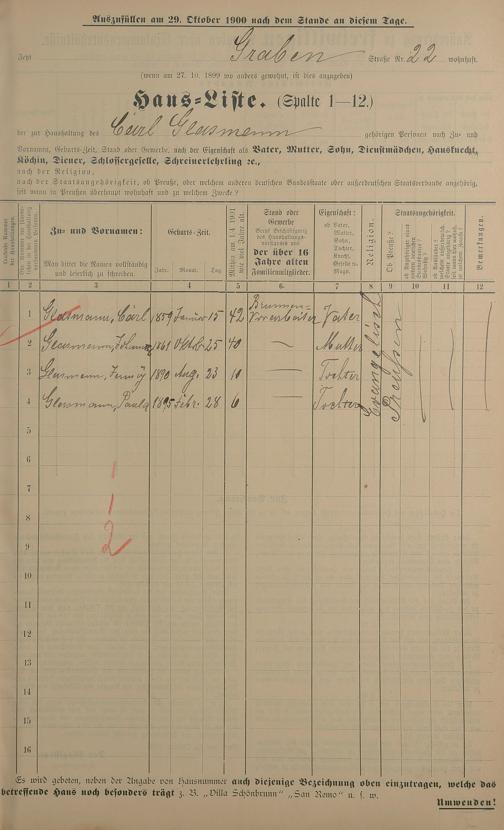 Auszufüllen am 29. Oktober 1900 nach dem Stande an diesem Tage.
Jetzt Graben Straße Nr. 22 wohnhaft.
(wenn am 27. 10. 1899 wo anders gewohnt, ist dies anzugeben)
Haus-Liste. (Spalte 1—12.)
der zur Haushaltung des Carl Glasmann gehörigen Personen nach Zu- und
Vornamen, Geburts-Zeit, Stand oder Gewerbe, nach der Eigenschaft als Vater, Mutter, Sohn, Dienstmädchen, Hausknecht,
Köchin, Diener, Schlossergeselle, Schreinerlehrling ꝛc.,
nach der Religion,
nach der Staatsangehörigkeit, ob Preuße, oder welchem anderen deutschen Bundesstaate oder außerdeutschen Staatsverbande angehörig,
seit wann in Preußen überhaupt wohnhaft und zu welchem Zwecke?
Zu- und Vornamen:
Man bittet die Namen vollständig
und leserlich zu schreiben.
Geburts-Zeit.
Jahr. Monat. Tag
Mithin am 1/4 1901
wie viel Jahre alt.
Stand oder
Gewerbe
der über 16
Jahre alten
Familienmitglieder.
Eigenschaft:
ob Vater,
Mutter,
Sohn,
Tochter,
Knecht,
Geselle o.
Magd.
Religion.
Staatsangehörigkeit.
Ob Preuße?
Bemerkungen.
1 2 3 4 5 6 7 8 9 10 11 12
1 Glasmann, Carl 1859 Januar 15 42 Brunnen-
Vorarbeiter Vater
2 Glasmann, 1861 Oktb. 25 40 — Mutter
3 Glasmann, Jenny 1890 Aug. 23 10 — Tochter
4 Glasmann, Paula 1895 Febr. 28 6 — Tochter
Evangelisch
Preußen
5
6
7
8
9
10
11
12
13
14
15
16
1
1
2
Es wird gebeten, neben der Angabe von Hausnummer auch diejenige Bezeichnung oben einzutragen, welche das
betreffende Haus noch besonders trägt z. B. „Villa Schönbrunn" „San Remo" u. s. w.
Umwenden!